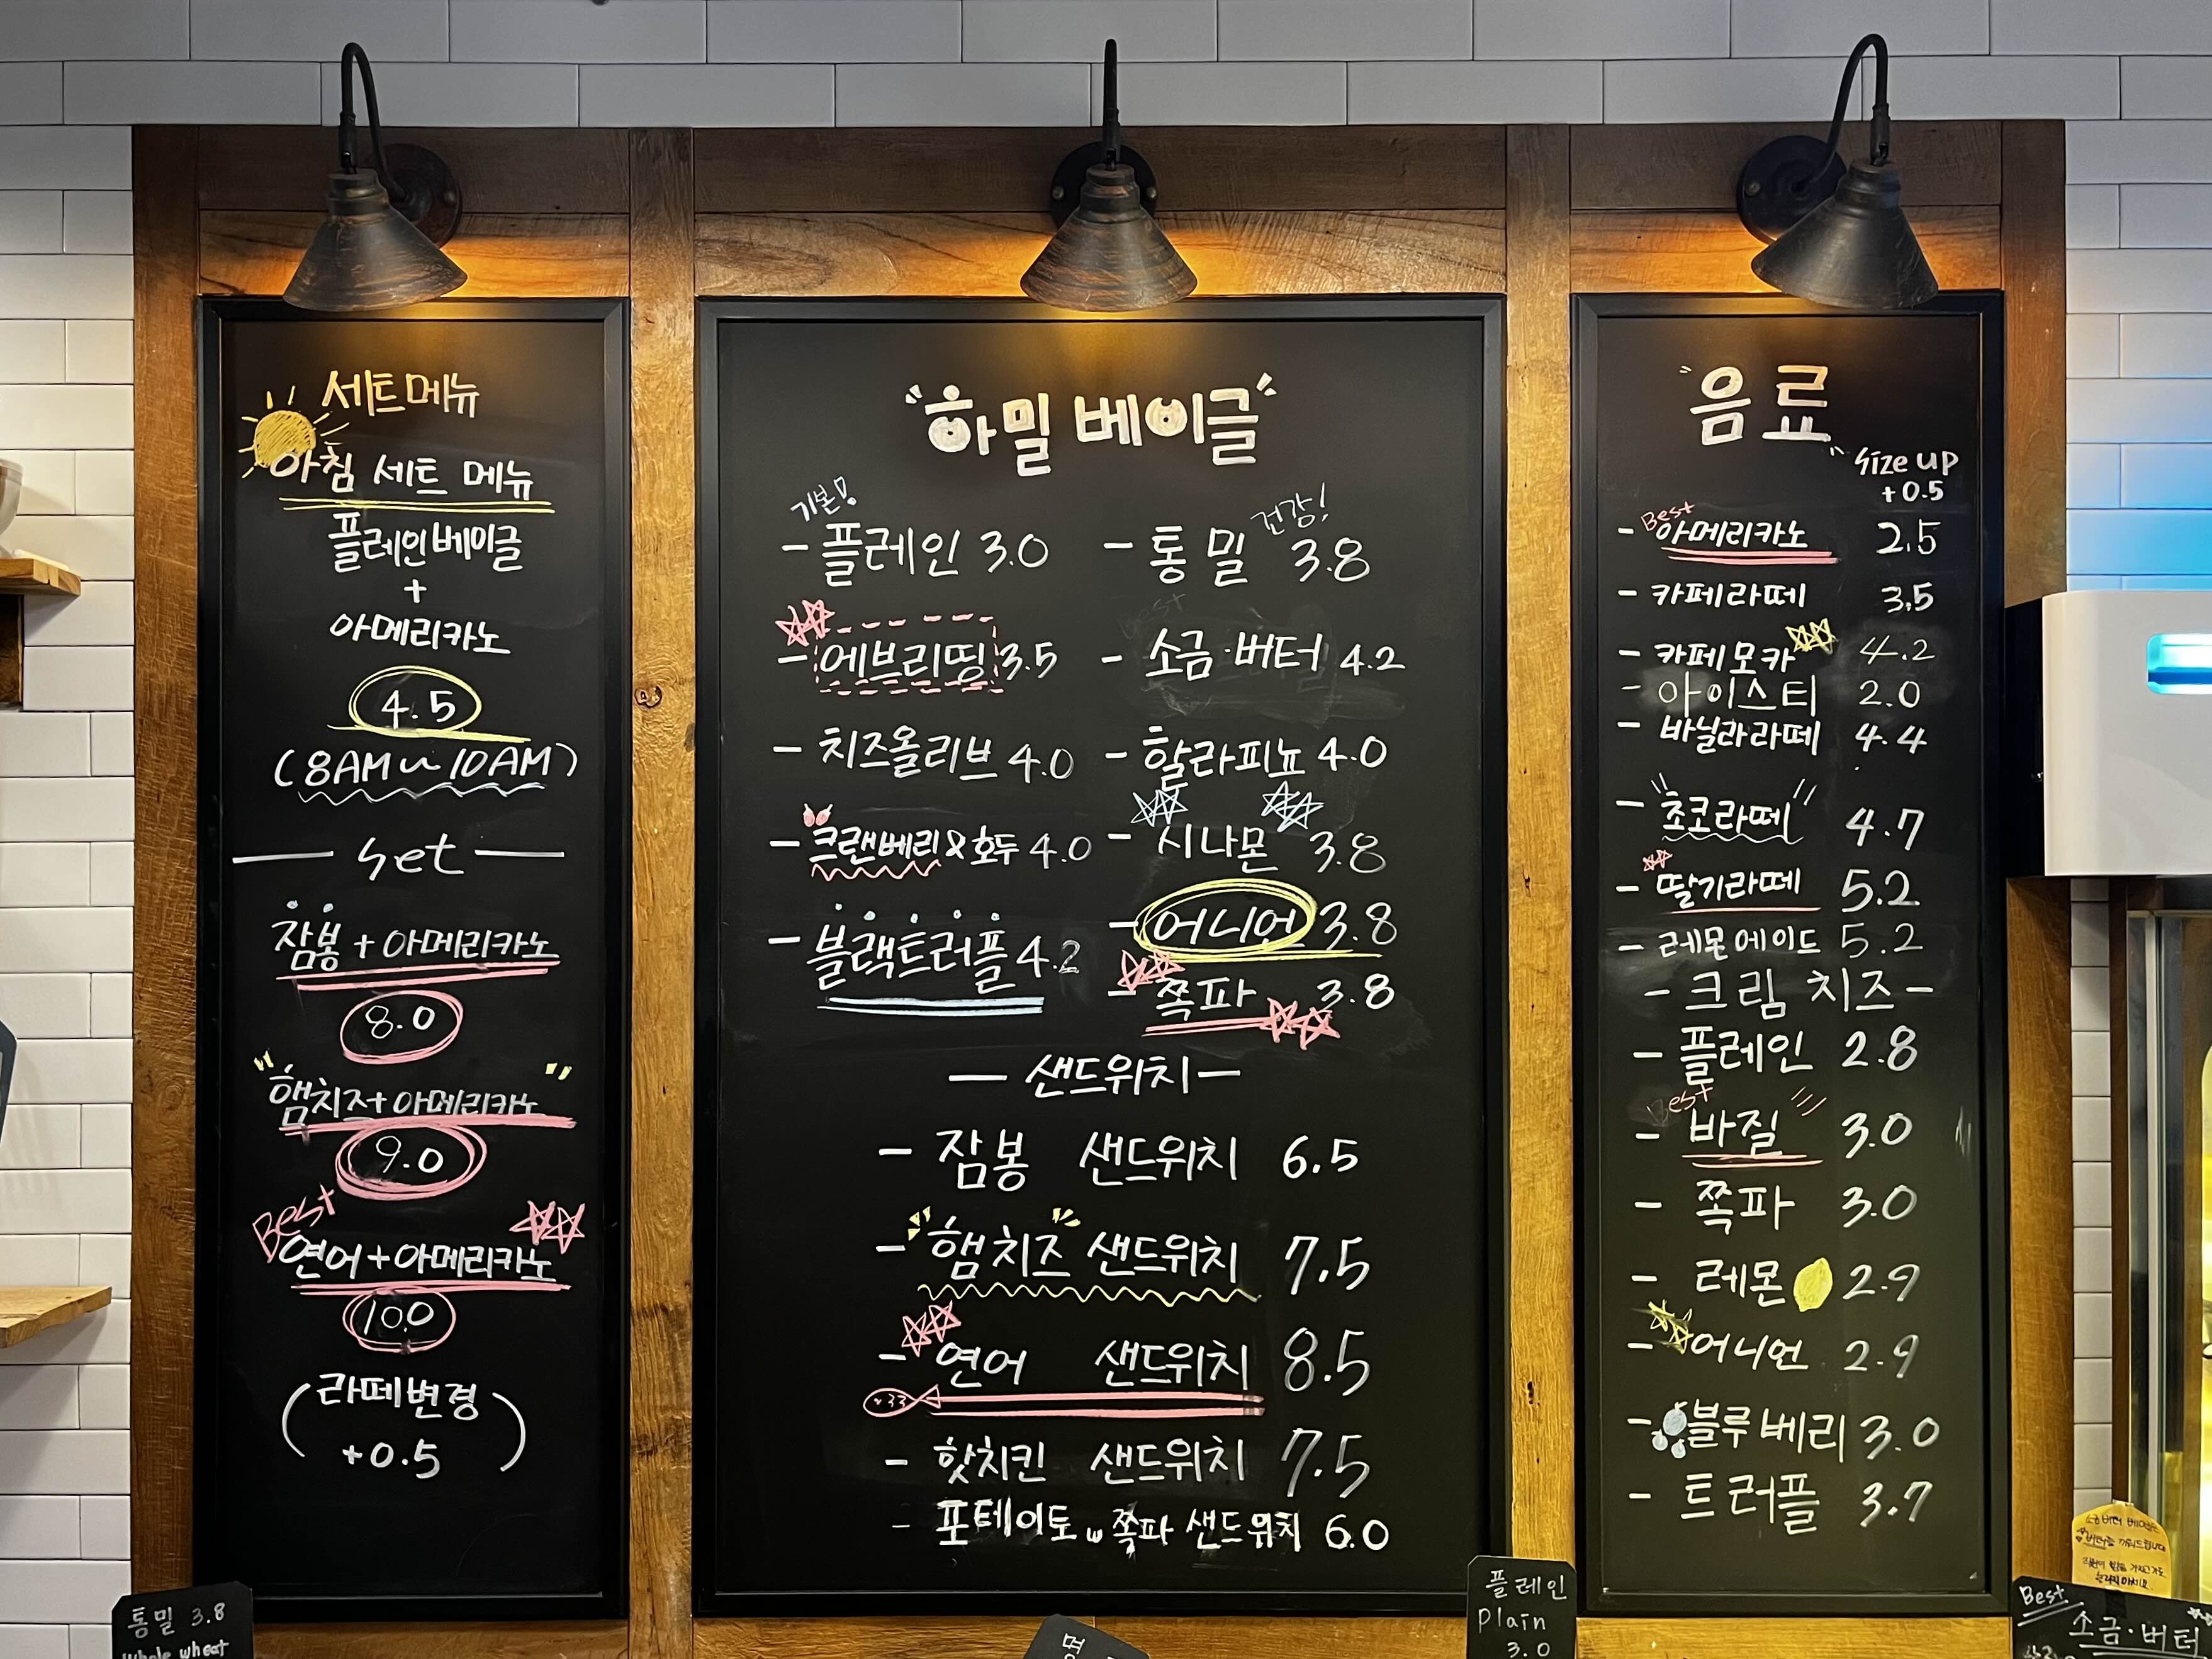 세트메뉴
아침 세트 메뉴
플레인베이글
+
아메리카노
4.5
(8AM ~ 10AM)
set
잠봉 + 아메리카노
8.0
햄치즈 + 아메리카노
9.0
Best
연어 + 아메리카노
10.0
(라떼변경
+0.5)
"하밀 베이글"
기본!
- 플레인 3.0
건강!
- 통밀 3.8
- 에브리띵 3.5
- 소금·버터 4.2
- 치즈올리브 4.0
- 할라피뇨 4.0
- 크랜베리&호두 4.0
- 시나몬 3.8
- 블랙트러플 4.2
- 어니언 3.8
- 쪽파 3.8
— 샌드위치 —
- 잠봉 샌드위치 6.5
- "햄치즈" 샌드위치 7.5
- 연어 샌드위치 8.5
- 핫치킨 샌드위치 7.5
- 포테이토 w 쪽파 샌드위치 6.0
"음료"
Size up
+0.5
Best
- 아메리카노 2.5
- 카페라떼 3.5
- 카페모카 4.2
- 아이스티 2.0
- 바닐라라떼 4.4
- "초코라떼" 4.7
- 딸기라떼 5.2
- 레몬에이드 5.2
- 크림 치즈 -
- 플레인 2.8
Best
- 바질 3.0
- 쪽파 3.0
- 레몬 2.9
- 어니언 2.9
- 블루베리 3.0
- 트러플 3.7
통밀 3.8
Whole wheat
플레인
Plain
3.0
Best
소금·버터